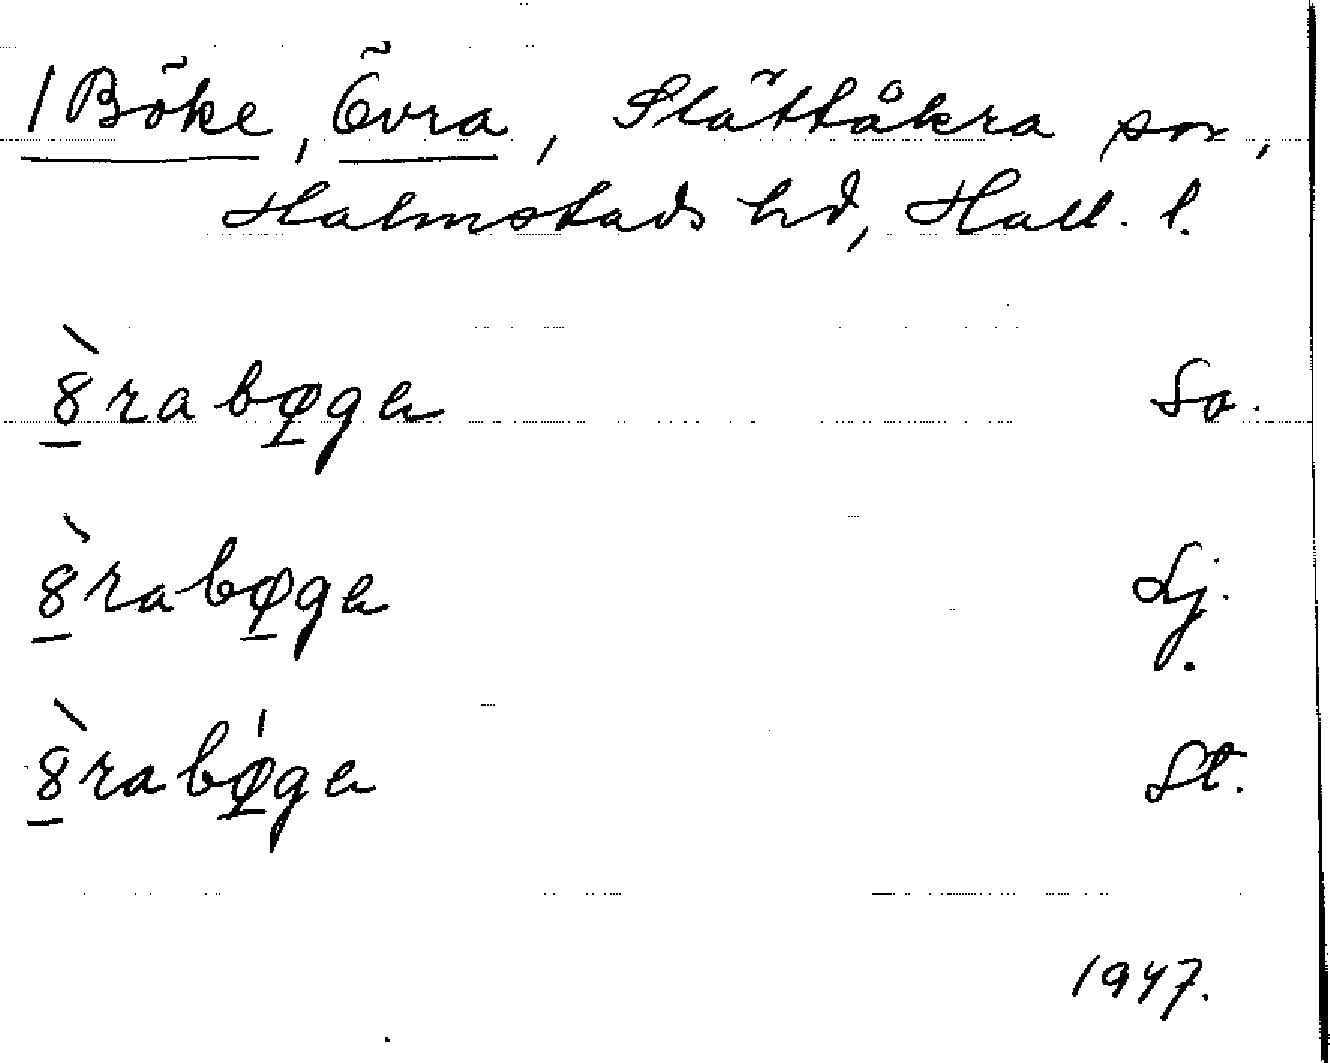 1 Böke, Övra, Slättåkra sn,
Halmstads hd, Hall. l.
8̲̀rabø̲gə So.
8̲̀rabø̲gə Lj.
8̲̀rabǿ̲gə St.
1947.